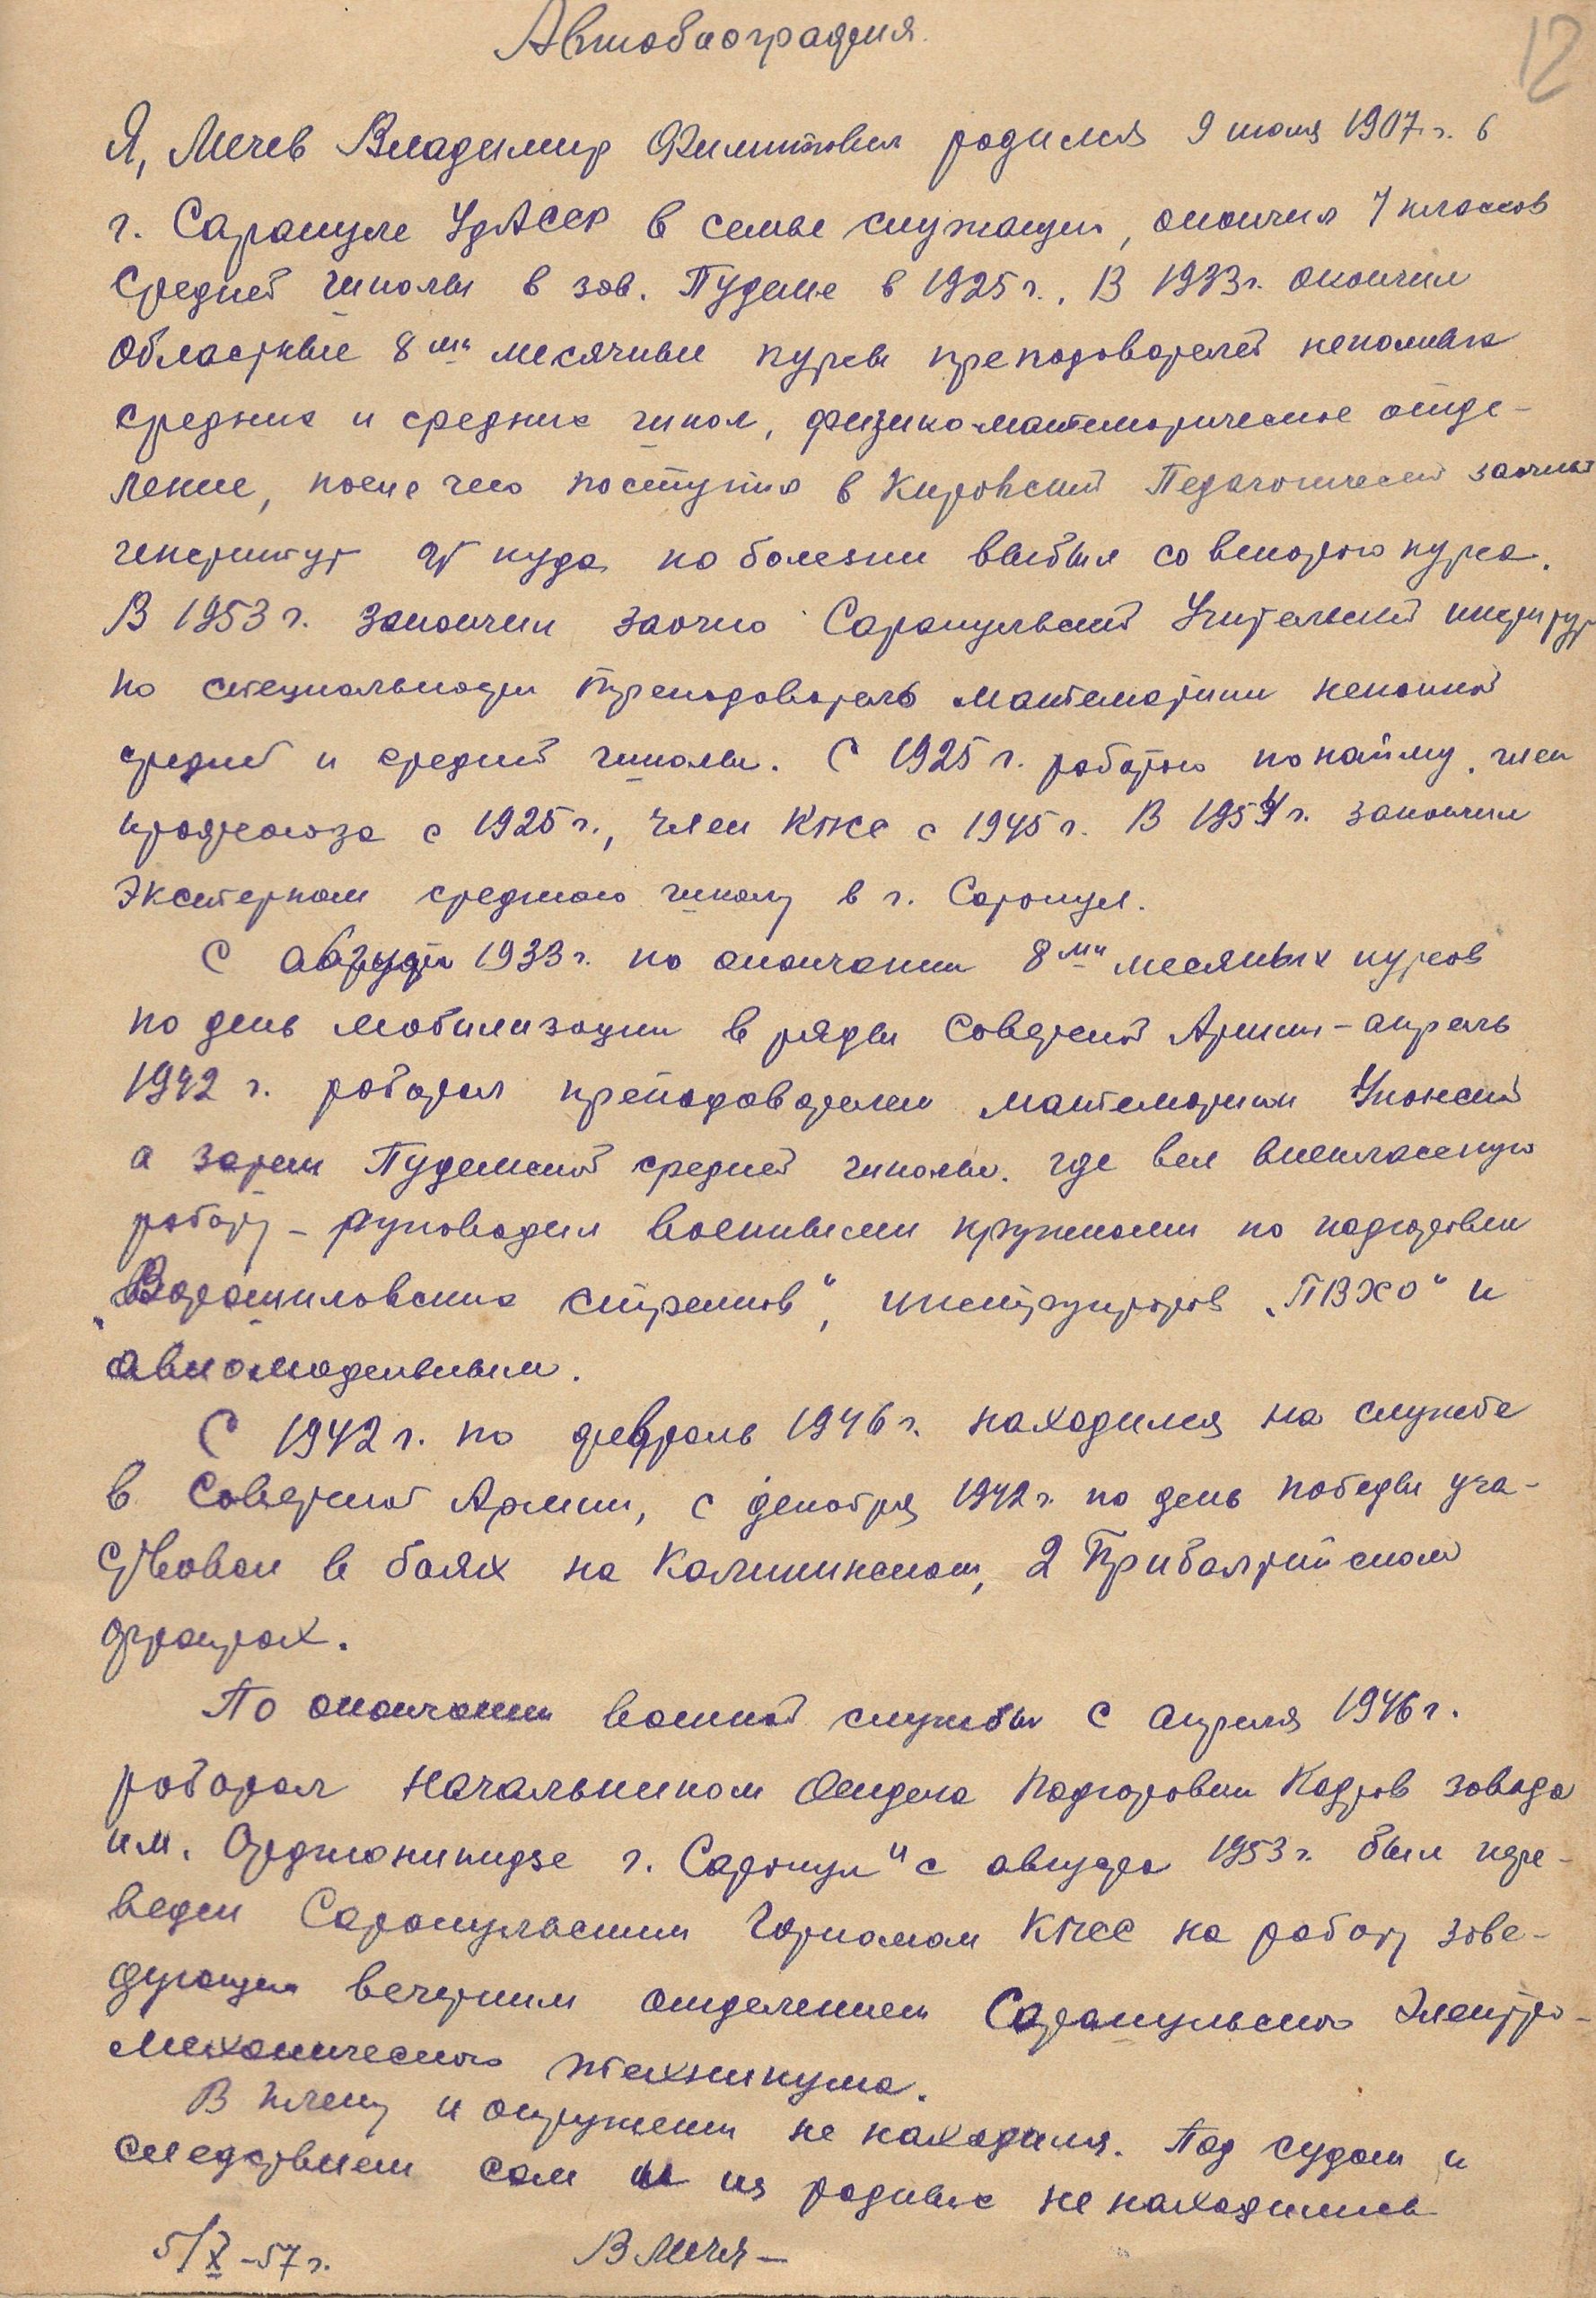 Автобиография.
12
Я, Мечев Владимир Филиппович родился 9 июля 1907 г. в
г. Сарапуле УдАССР в семье служащих, окончил 7 классов
средней школы в зав. Пудеме в 1925 г.. В 1933 г. окончил
областные 8ми месячные курсы преподавателей неполных
средних и средних школ, физико-математическое отде-
ление, после чего поступил в Кировский Педагогический заочный
институт от куда по болезни выбыл со второго курса.
В 1953 г. закончил заочно Сарапульский Учительский институт
по специальности преподаватель математики неполной
средней и средней школы. С 1925 г. работаю по найму, член
профсоюза с 1925 г., член КПСС с 1945 г. В 1954 г. закончил
Экстерном среднюю школу в г. Сарапул.
С августа 1933 г. по окончании 8ми месячных курсов
по день мобилизации в ряды Советской Армии - апрель
1942 г. работал преподавателем математики
а затем Пудемской средней школы. где вел внеклассную
работу - руководил военными кружками по подготовки
„Ворошиловских стрелков", инструкторов „ПВХО" и
авиомодельным.
С 1942 г. по февраль 1946 г. находился на службе
в Советской Армии, с декабря 1942 г. по день победы уча-
ствовал в боях на Калининском, 2 Прибалтийском
фронтах.
По окончании военной службы с апреля 1946 г.
работал Начальником Отдела Подготовки Кадров завода
им. Орджоникидзе г. Сарапул и с августа 1953 г. был пере-
веден Сарапульским Горкомом КПСС на работу заве-
дующим вечерним отделением Сарапульского Электро-
механического техникума.
В плену и окружении не находился. Под судом и
следствием сам и из родных не находились
5/X-57 г. В Меч